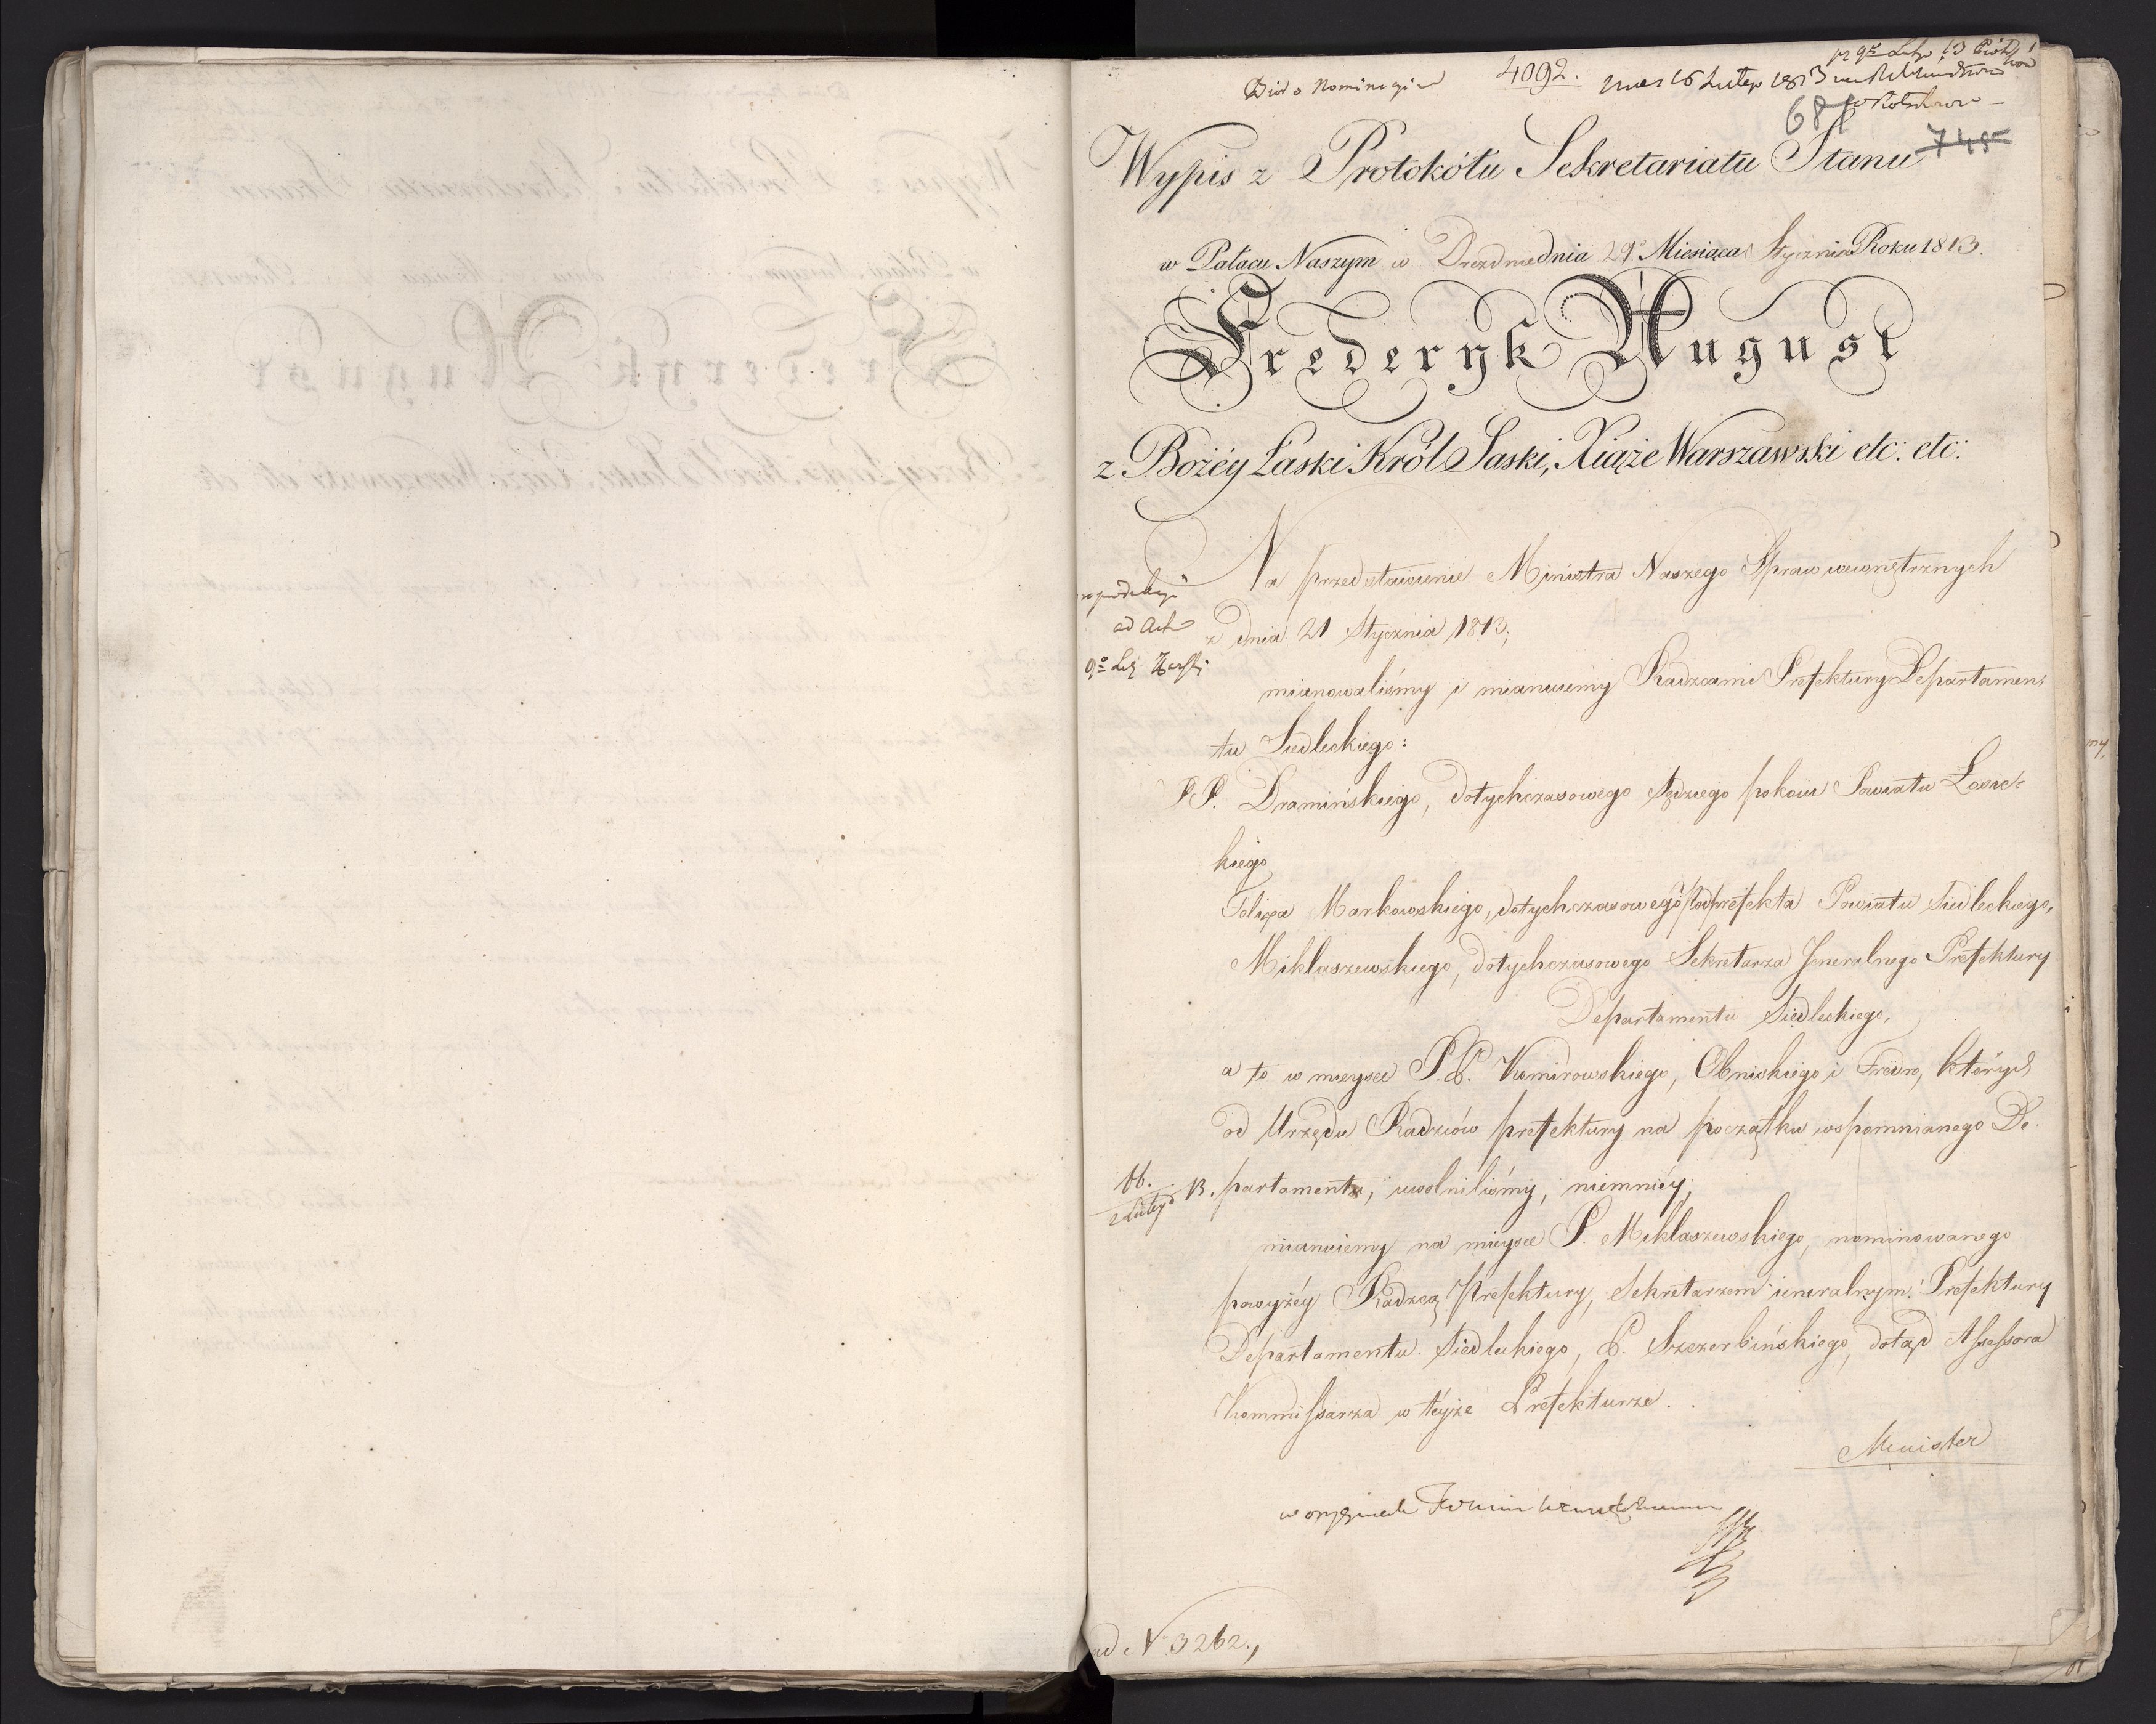 4092.
681
745
Wypis z Protokółu Sekretariatu Stanu
w Pałacu Naszym w Dreznie dnia 29. Miesiąca Stycznia Roku 1813.
Frederyk August
z Bożéy Łaski Król Saski, Xiąże Warszawski etc: etc:
Na przedstawienie Ministra Naszego Spraw wewnętrznych
ad Acta
z dnia 21 Stycznia 1813;
mianowaliśmy i mianuiemy Radzcami Prefektury Departamen-
tu Siedleckiego:
PP. Dramińskiego, dotychczasowego Sędziego pokoiu Powiatu Łosic-
kiego
Felixa Markowskiego, dotychczasowego Podprefekta Powiatu Siedleckiego,
Miklaszewskiego, dotychczasowego Sekretarza Jeneralnego Prefektury
Departamentu Siedleckiego,
a to w mieysce P.P. Komirowskiego, Obniskiego i Fredro, których
od Urzędu Radzców prefektury na początku wspomnianego De-
partamentu, uwolniliśmy, niemniéy;
mianuiemy na mieysce P. Miklaszewskiego, nominowanego
powyżéy Radzcą Prefektury, Sekretarzem ieneralnym Prefektury
Departamentu Siedleckiego, P. Szczerbińskiego, dotąd Assessora
Kommissarza w téyże Prefekturze.
Minister
w oryginale
ad N 3262.,